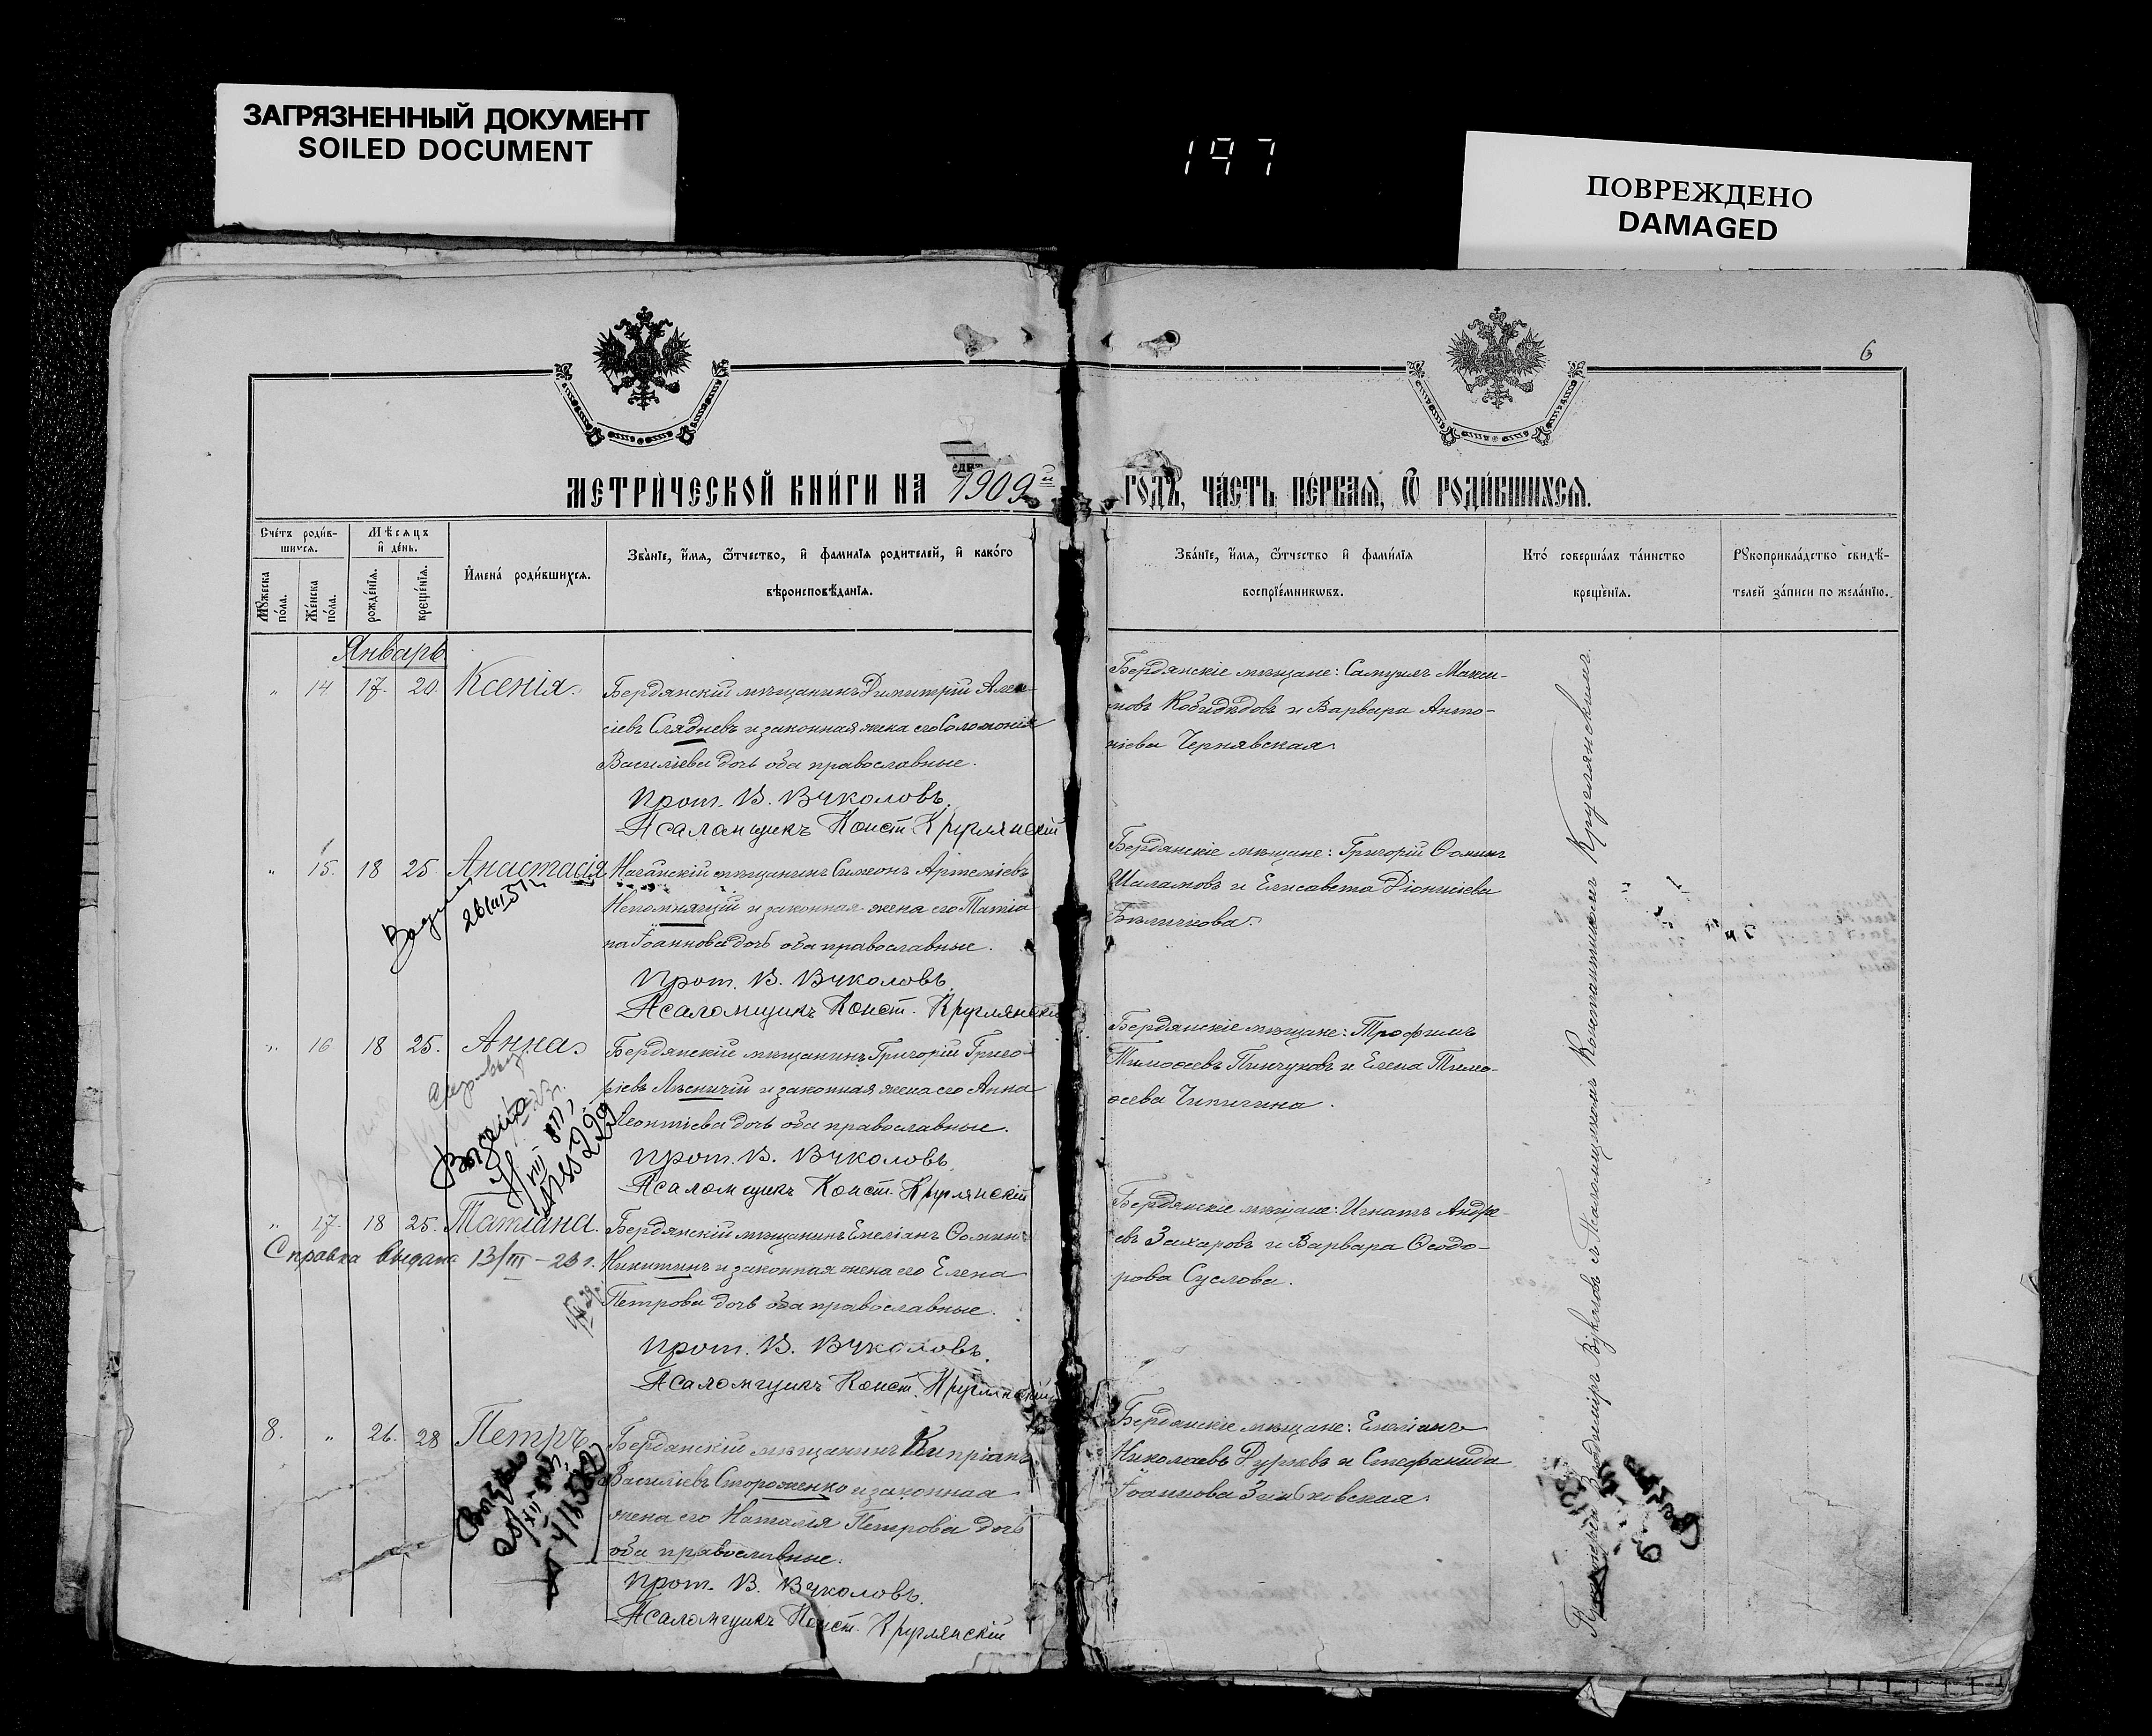 ЗАГРЯЗНЕННЫЙ ДОКУМЕНТ
SOILED DOCUMENT
197
ПОВРЕЖДЕНО
DAMAGED
6
МЕТРИ́ЧЕСКОЙ КНИ́ГИ НА 1909й ГО́ДЪ, ЧА́СТЬ ПЕ́РВАѦ, Ѿ РОДИ́ВШИХСѦ.
Сче́тъ роди́в-
шихсѧ.
Мѣсѧцъ
и҆ де́нь.
Мꙋжеска
по́ла.
Же́нска
по́ла.
рожде́нїѧ.
креще́нїѧ.
И҆мена̀ роди́вшихсѧ.
Зва́нїе, и҆́мѧ, ѻ҆́тчество, и҆ фами́лїѧ родителей, и҆ како́гѡ
вѣроисповѣ́данїѧ.
Зва́нїе, и҆́мѧ, ѻ҆́тчество и҆ фами́лїѧ
воспрїе́мникѡвъ.
Кто̀ соверша́лъ та́инство
креще́нїѧ.
Рꙋкоприкла́дство свидѣ́-
телей за́писи по жела́нїю.
Январь
" 14 17. 20. Ксенія.
Бердянскій мѣщанинъ Димитрій Алек-
сіевъ Слядневъ и законная жена его Соломонія
Васильева дочь оба православные.
Прот. В. Вуколовъ.
Псаломщикъ Конст. Круглянскій
Бердянскіе мѣщане: Самуилъ Макси-
мовъ Кобидѣдовъ и Варвара Анто-
ніева Чернявская.
" 15. 18 25. Анастасія
26/III 51 г.
Ногайскій мѣщанинъ Симеонъ Артеміевъ
Непомнящій и законная жена его Татіа-
на Іоаннова дочь оба православные.
Прот. В. Вуколовъ.
Псаломщикъ Конст. Круглянскій
Бердянскіе мѣщане: Григорій Ѳоминъ
Шаламовъ и Елисавета Діонисіева
Бѣличкова.
" 16 18 25. Анна.
Бердянскій мѣщанинъ Григорій Григо-
ріевъ Лѣсничій и законная жена его Анна
Леонтіева дочь оба православные.
Прот. В. Вуколовъ.
Псаломщикъ Конст. Круглянскій
Бердянскіе мѣщане: Трофимъ
Тимоѳеевъ Пинчуковъ и Елена Тимо-
ѳеева Чипигина.
" 17. 18 25. Татіана.
Справка выдана 13/III – 23 г.
Бердянскій мѣщанинъ Емеліанъ Ѳоминъ
Никитинъ и законная жена его Елена
Петрова дочь оба православные.
Прот. В. Вуколовъ.
Псаломщикъ Конст. Круглянскій
Бердянскіе мѣщане: Игнатъ Андре-
евъ Захаровъ и Варвара Ѳеодо-
рова Суслова.
8. " 26. 28 Петръ
Бердянскій мѣщанинъ Кипріанъ
Василіевъ Стороженко и законная
жена его Наталія Петрова дочь
оба православные.
Прот. В. Вуколовъ.
Псаломщикъ Конст. Круглянскій
Бердянскіе мѣщане: Емеліанъ
Николаевъ и Стефанида
Іоаннова
Протоіерей Владиміръ Вуколовъ съ Псаломщикомъ Константиномъ Круглянскимъ.